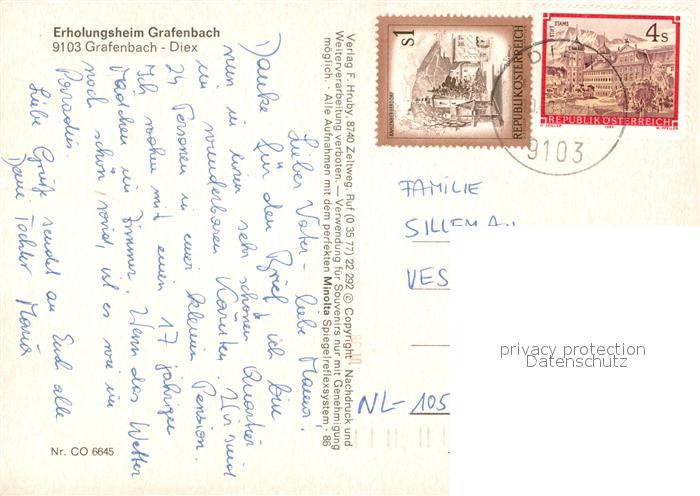 Erholungsheim Grafenbach
9103 Grafenbach - Diex
Lieber Vater - liebe Mama,
Danke für den Brief! ich bin
nun in einem sehr schönen Quartier
im wunderbaren Kärnten. Wir sind
24 Personen in einer kleinen Pension.
Ich wohne mit einem 17 jährigen
Mädchen im Zimmer. Wenn das Wetter
noch schön wird, ist es wie im
Paradies.
Liebe Grüße sendet an Euch alle
Tochter Maria
Nr. CO 6645
Verlag F. Hruby, 8740 Zeltweg, Ruf (0 35 77) 22 292 © Copyright · Nachdruck und
Weiterverarbeitung verboten. — Verwendung für Souvenirs nur mit Genehmigung
möglich. · Alle Aufnahmen mit dem perfekten Minolta Spiegelreflexsystem. · 86
S1
REPUBLIK ÖSTERREICH
STIFT STAMS
4 S
REPUBLIK ÖSTERREICH
DI
9103
FAMILIE
SILLEMAN
VES
NL- 105
privacy protection
Datenschutz